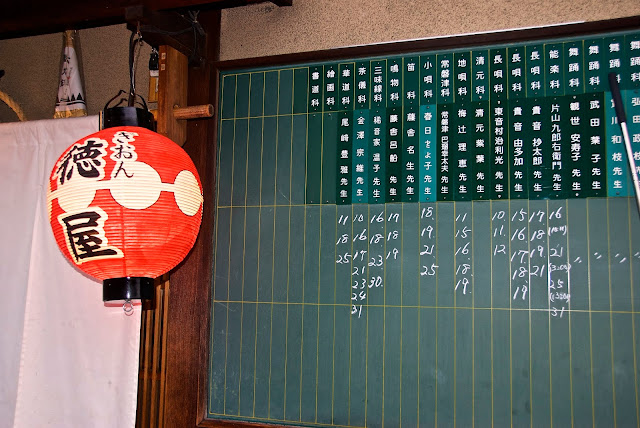 ぎおん
徳屋
舞踊科
舞踊科
舞踊科 武田 葉子 先生 〃 〃
舞踊科 観世 安寿子 先生 〃 〃
能楽科 片山 九郎右衛門 先生 16 21 25 31
長唄科 貴音 抄太郎 先生 17 18 19 21
長唄科 貴音 由多加 先生 15 16 17 18 19
長唄科 東音 村治 利光 先生 10 11 12
清元科 清元 紫葉 先生
地唄科 梅辻 理恵 先生 11 15 16 18 19
常磐津科 常磐津 巴瑠幸太夫 先生
小唄科 春日 とよ子 先生 18 19 21 25
笛科 藤舎 名生 先生
鳴物科 藤舎 呂船 先生 17 18 19
三味線科 稀音家 温子 先生 16 18 23 30
茶儀科 金澤 宗維 先生 10 16 17 21 23 24 31
華道科 尾崎 豊雅 先生 11 18 25
絵画科
書道科